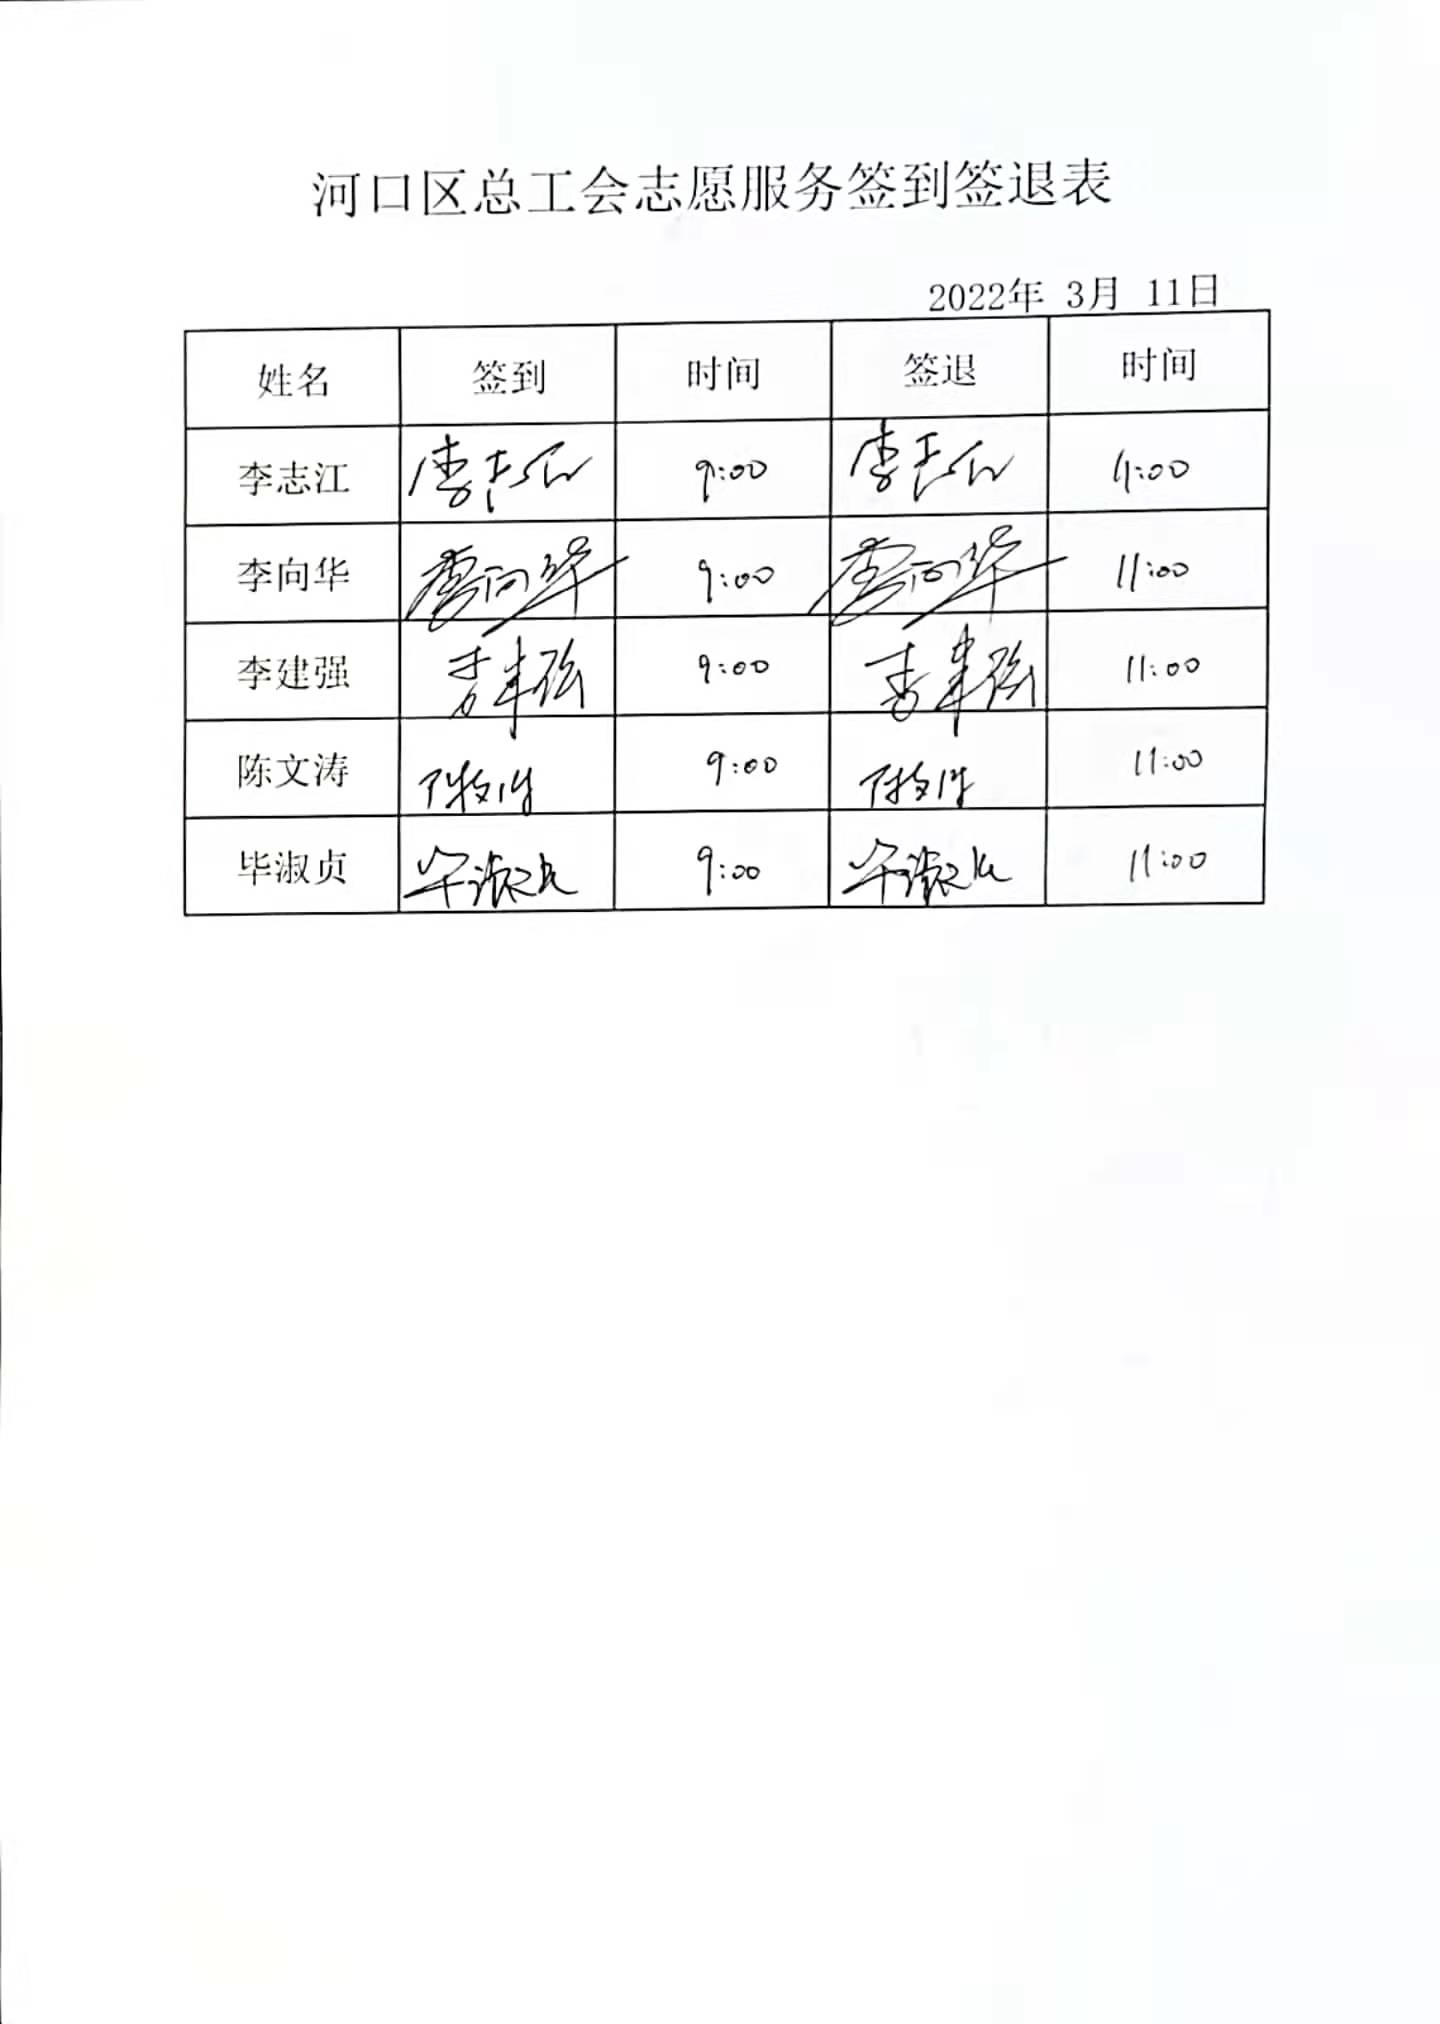 河口区总工会志愿服务签到签退表
2022年 3月 11日
姓名 签到 时间 签退 时间
李志江 李志江 9:00 李志江 11:00
李向华 李向华 9:00 李向华 11:00
李建强 李建强 9:00 李建强 11:00
陈文涛 陈文涛 9:00 陈文涛 11:00
毕淑贞 毕淑贞 9:00 毕淑贞 11:00